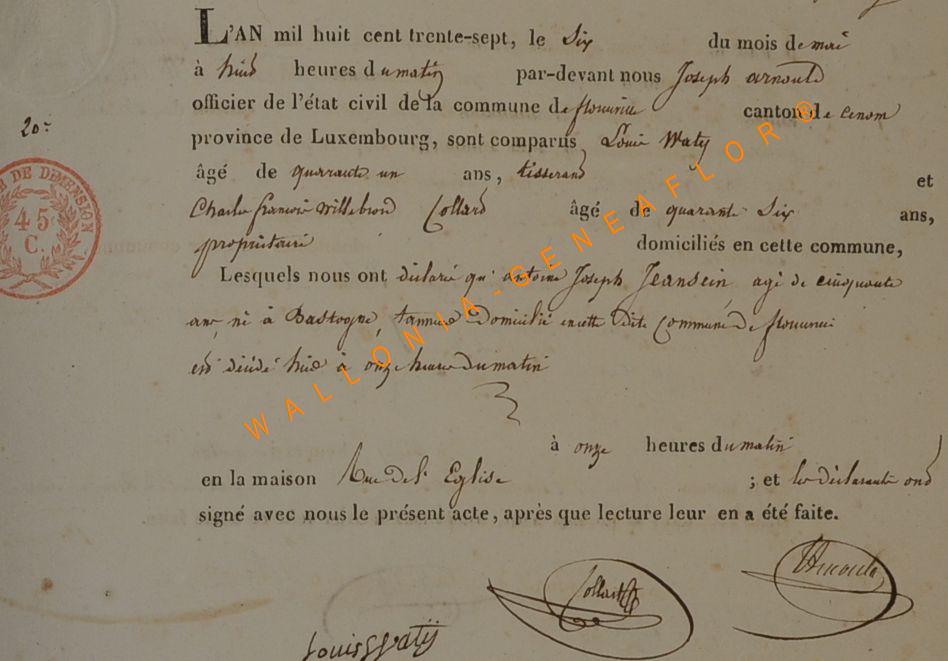 L'AN mil huit cent trente-sept, le Six du mois de mai
à huit heures du matin par-devant nous Joseph arnould
officier de l'état civil de la commune de florenville canton de
20.
province de Luxembourg, sont comparus Louis Watÿ
âgé de quarante un ans, tisserand et
Charles françois Willebrord Collard âgé de quarante Six ans,
propriétaire domiciliés en cette commune,
Lesquels nous ont déclaré qu'antoine Joseph Jeansein agé de cinquante
ans, né à Bastogne, tanneur Domicilié en cette dite Commune de
est décédé à onze heures du matin
à onze heures du matin
en la maison Rue de l'Eglise ; et les déclarants ont
signé avec nous le présent acte, après que lecture leur en a été faite.
DE DIMENSION
45
C.
WALLONIA-GENEAFLOR©
Collard
Arnould
Louis Watÿ